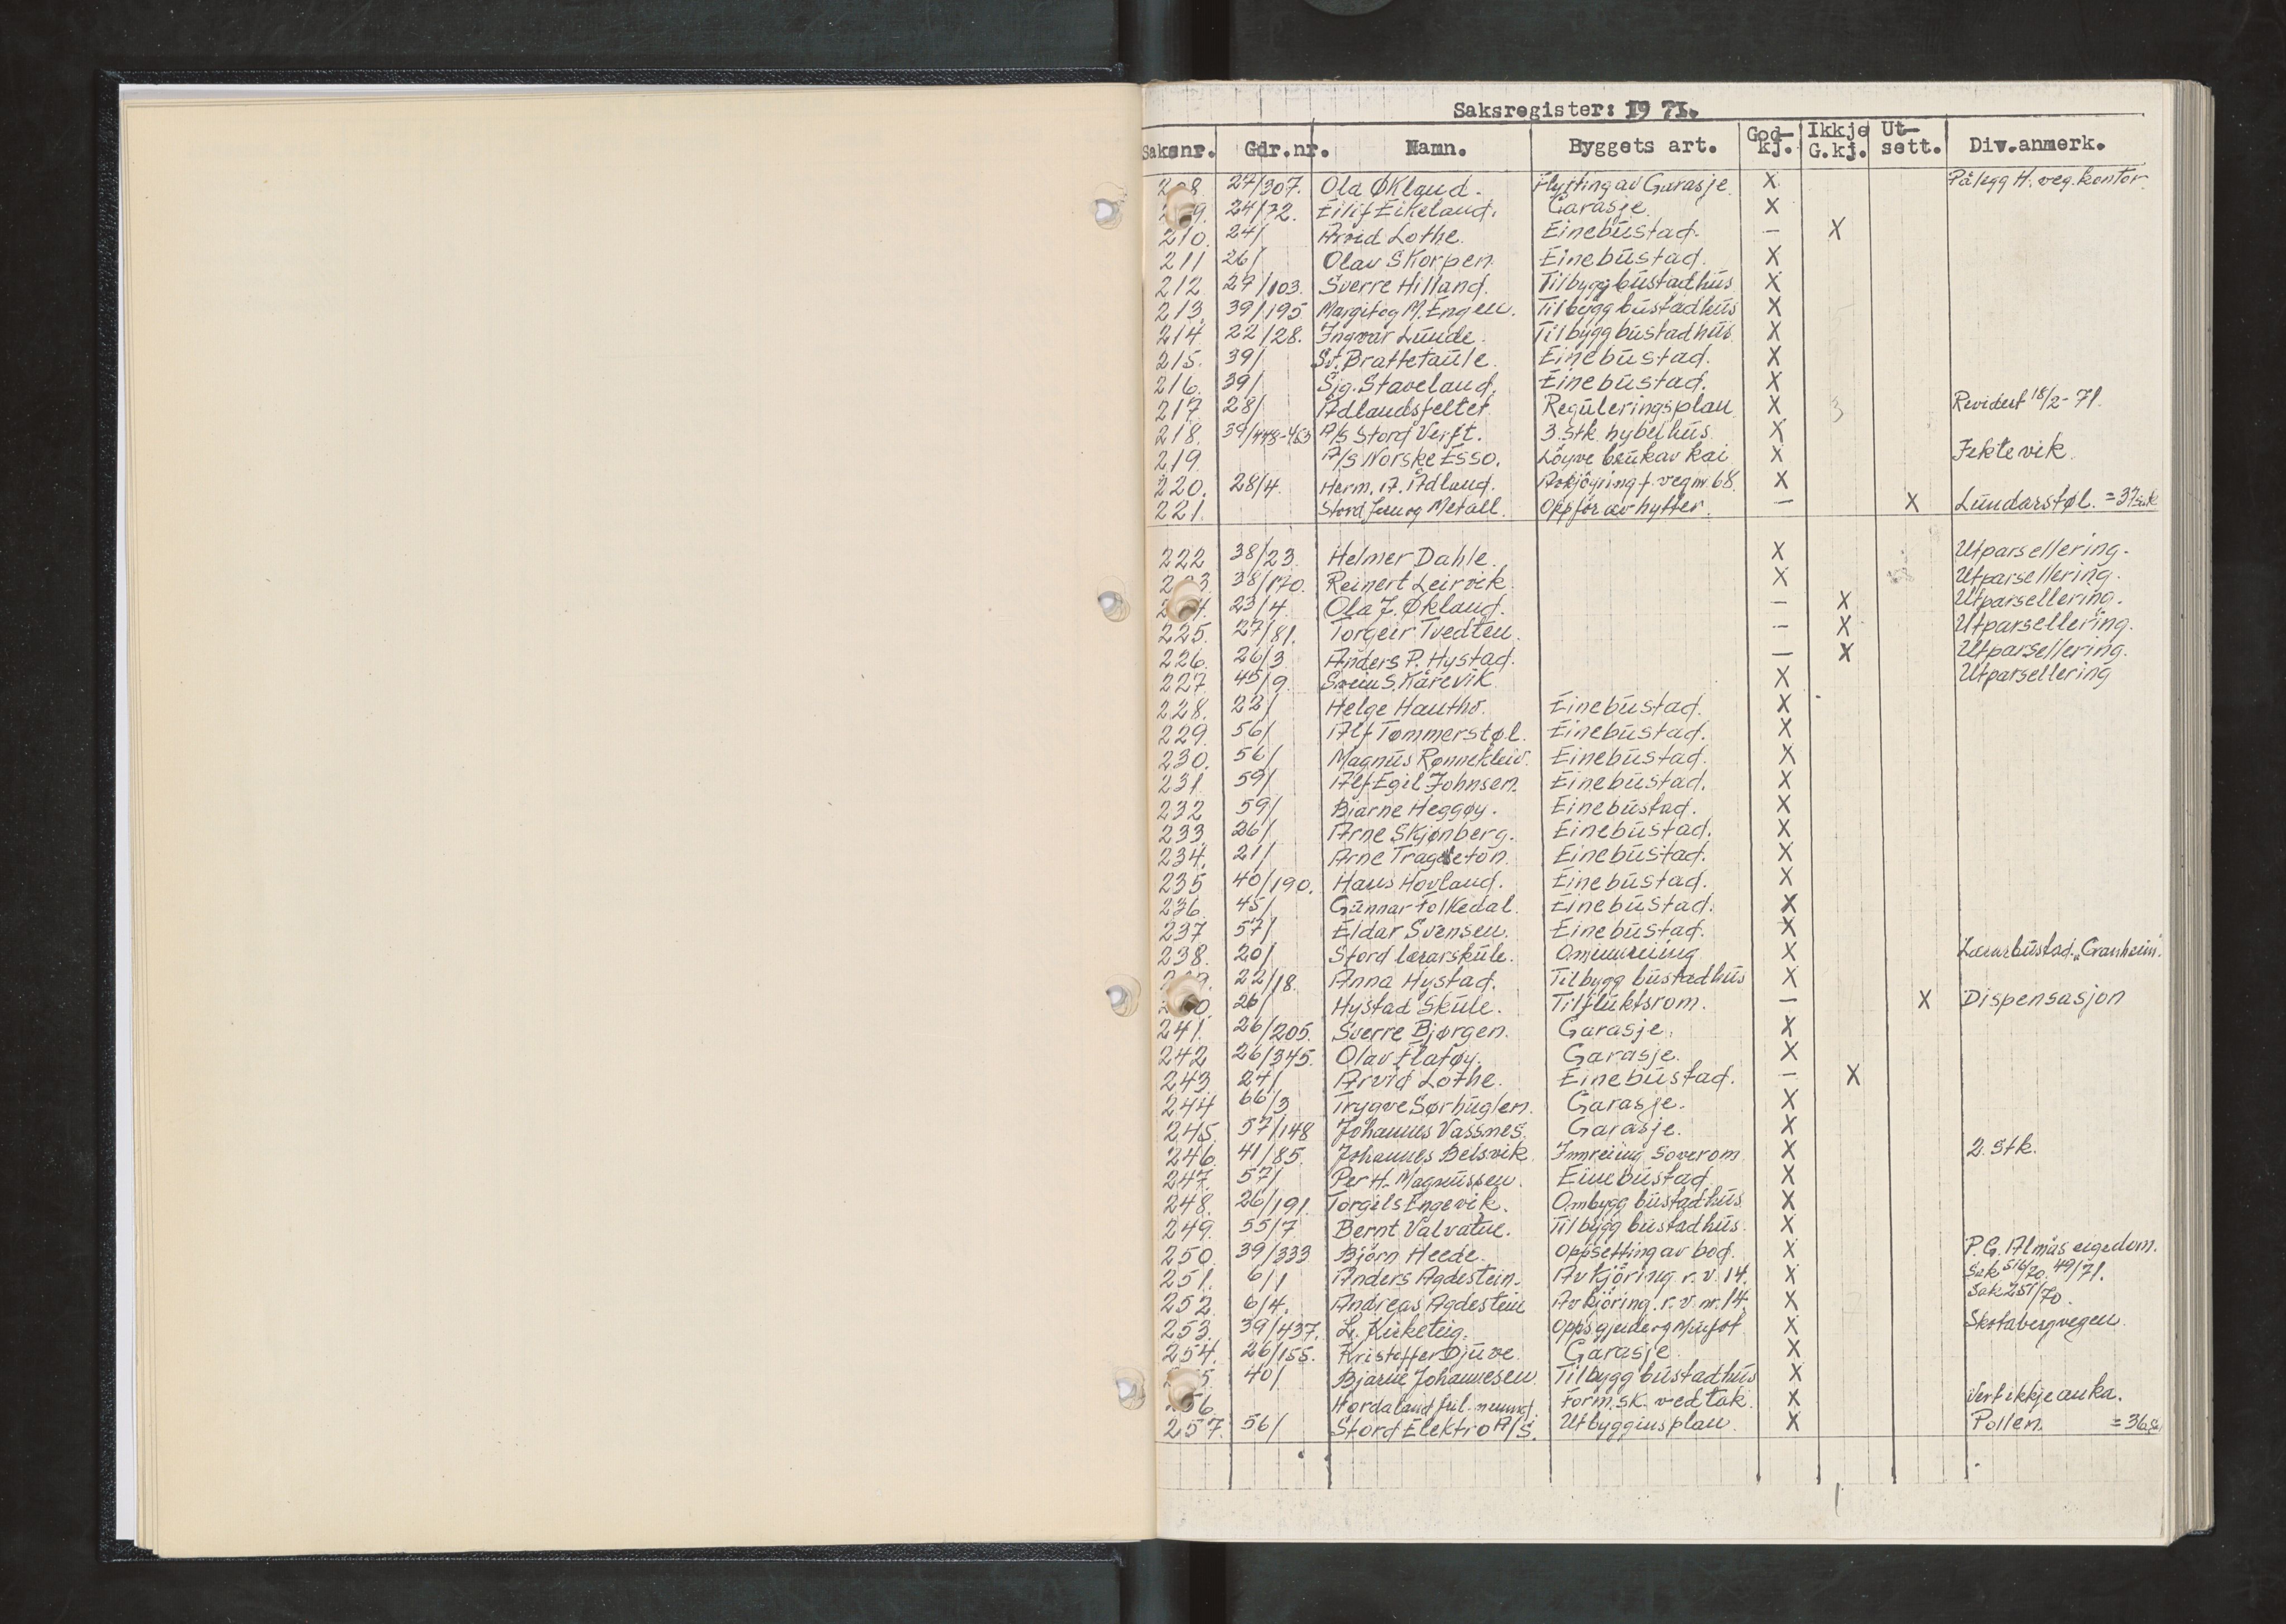 Saksregister: 1971.
Saksnr. Gdr.nr. Namn. Byggets art. God-kj. Ikkje G.kj. Ut-sett. Div.anmerk.
208. 27/307. Ola Økland. Flytting av Garasje. X Pålegg H. veg.kontor.
209. 24/72. Eilif Eikeland. Garasje. X
210. 24/ Arvid Lothe. Einebustad. — X
211 26/ Olav Skorpen. Einebustad. X
212. 27/103. Sverre Hilland. Tilbygg bustadhus X
213. 39/195. Margit og M. Engen. Tilbygg bustadhus X
214. 22/28. Ingvar Lunde. Tilbygg bustadhus. X
215. 39/ Sv. Brattetaule. Einebustad. X
216. 39/ Sig. Staveland. Einebustad. X
217. 28/ Ådlandsfeltet. Reguleringsplan. X 3 Revidert 18/2-71.
218. 39/448-453 A/S Stord Verft. 3.stk. hybelhus. X
219. A/S Norske Esso. Löyve bruk av kai X Jektevik.
220. 28/4. Herm. A. Ådland. Avkjöyring f. veg nr 68. X
221. Stord Jern og Metall. Oppför av hytter. — X Lundarstøl. = 37 sak
222 38/23. Helmer Dahle. X Utparsellering.
223. 38/170. Reinert Leirvik. X Utparsellering.
224. 23/4. Ola J. Økland. — X Utparsellering.
225. 27/81. Torgeir Tvedten. — X Utparsellering.
226. 26/3 Anders P. Hystad. — X Utparsellering.
227. 45/9. Svein S. Kårevik X Utparsellering
228. 22/ Helge Hautho. Einebustad. X
229. 56/ Alf Tømmerstøl. Einebustad. X
230. 56/ Magnus Rønnekleiv. Einebustad. X
231. 59/ Alf Egil Johnsen. Einebustad. X
232 59/ Bjarne Heggøy. Einebustad. X
233. 26/ Arne Skjønberg. Einebustad. X
234. 21/ Arne Trageton. Einebustad. X
235 40/190. Hans Hovland. Einebustad. X
236. 45/ Gunnar Folkedal. Einebustad. X
237 57/ Eldar Svensen. Einebustad. X
238. 20/ Stord lærarskule. Ominnreiing X Lærarbustad. „Granheim".
239. 22/18. Anna Hystad. Tilbygg bustadhus X
240. 26/ Hystad Skule. Tilfluktsrom. — X Dispensasjon
241. 26/205. Sverre Bjørgen. Garasje. X
242 26/345. Olav Flatøy. Garasje. X
243. 24/ Arvid Lothe. Einebustad. — X
244 66/3 Trygve Sørhuglen. Garasje. X
245. 57/148 Johannes Vassnes. Garasje. X
246. 41/85. Johannes Belsvik. Innreiing Soverom. X 2. stk.
247. 57/ Per H. Magnussen. Einebustad X
248. 26/191. Torgils Engevik. Ombygg bustadhus X
249. 55/7 Bernt Valvatne. Tilbygg bustadhus. X
250. 39/333 Björn Heede. Oppsetting av bod. X P.G. Almås eigedom.
251. 6/1 Anders Agdestein. Avkjöring. r.v. 14. X Sak 516/70. 49/71.
252. 6/4. Andreas Agdestein Avkjöring. r.v. nr. 14. X Sak 251/70.
253. 39/437. L. Kirketeig. X Skotabergvegen
254. 26/155. Kristoffer Djuve. Garasje. X
255 40/ Bjarne Johannesen Tilbygg bustadhus X
256. Hordaland ful. nemnd. Form.sk. vedtak. X Vert ikkje anka.
257. 56/ Stord Elektro A/S. Utbyggingsplan. X Pollen. = 36 sak